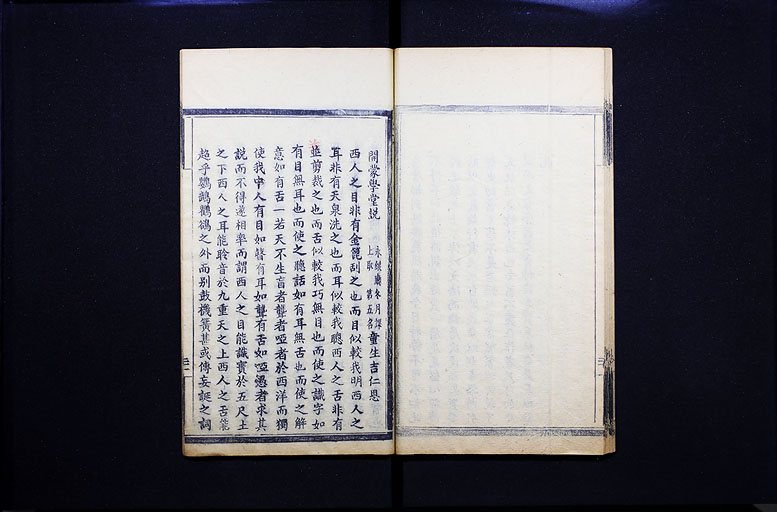 開蒙學堂説
永嬪廟冬月課童生吉仁恩
上取 第五名
西人之目非有金篦刮之也而目似較我明西人之
耳非有天泉洗之也而耳似較我聰西人之舌非有
並剪裁之也而舌似較我巧無目也而使之識字如
有目無耳也而使之聽話如有耳無舌也而使之解
意如有舌一若天不生盲者聾者啞者於西洋而獨
使我中人有目如瞽有耳如聾有舌如啞愚者求其
説而不得遂相率而謂西人之目能識寶於五尺土
之下西人之耳能聆音於九重天之上西人之舌能
超乎鸚鵡鸜鵒之外而別鼓機簧甚或傳妄誕之詞